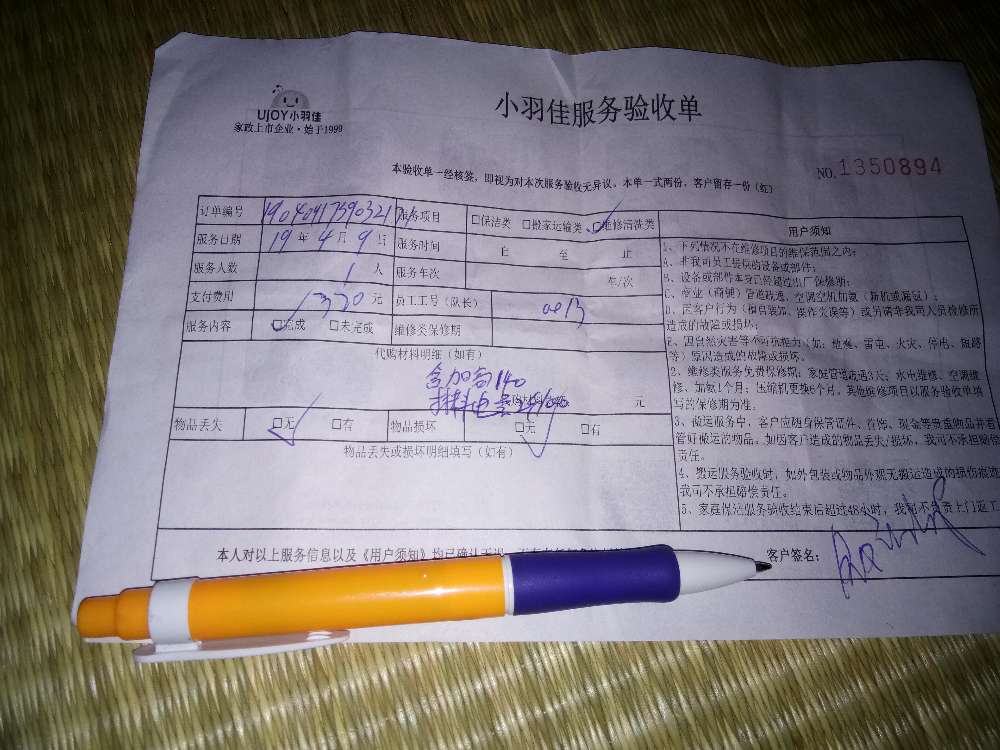 UJOY小羽佳
家政上市企业·始于1999
小羽佳服务验收单
NO.1350894
本验收单一经核签，即视为对本次服务验收无异议，本单一式两份，客户留存一份（红）
订单编号 服务项目 □保洁类 □搬家运输类 □维修清洗类
服务日期 19年4月9日 服务时间 自 至 止
服务人数 1人 服务车次 车/次
支付费用 330元 员工工号（队长） 0013
服务内容 □完成 □未完成 维修类保修期
代购材料明细（如有）
含加高140
元
物品丢失 □无 □有 物品损坏 □无 □有
物品丢失或损坏明细填写（如有）
用户须知
1、下列情况不在维修项目的维保范围之内：
A、非我司员工装联的设备或部件；
B、设备或部件本身已经超过出厂保修期；
C、商业（商铺）管道疏通、空调空机加氟（新机或漏氟）；
D、因客户行为（擅自装卸、误作失误等）或另请非我司人员检修所
造成的故障或损坏；
E、因自然灾害等不可抗拒力（如：地震、雷电、火灾、停电、短路
等）原因造成的故障或损坏。
2、维修类服务免费保修期：家庭管道疏通3天；水电维修、空调维
修、加氟1个月；压缩机更换6个月，其他维修项目以服务验收单填
写的保修期为准。
3、搬运服务中，客户应随身保管证件、首饰、现金等贵重物品并看
管好搬运的物品，如因客户造成的物品丢失/损坏，我司不承担赔偿
责任。
4、搬运服务验收时，如外包装或物品外观无搬运造成的损伤痕迹
我司不承担赔偿责任。
5、家庭保洁服务验收结束后超过48小时，我司不负责上门返工
本人对以上服务信息以及《用户须知》均已确认无误
客户签名：